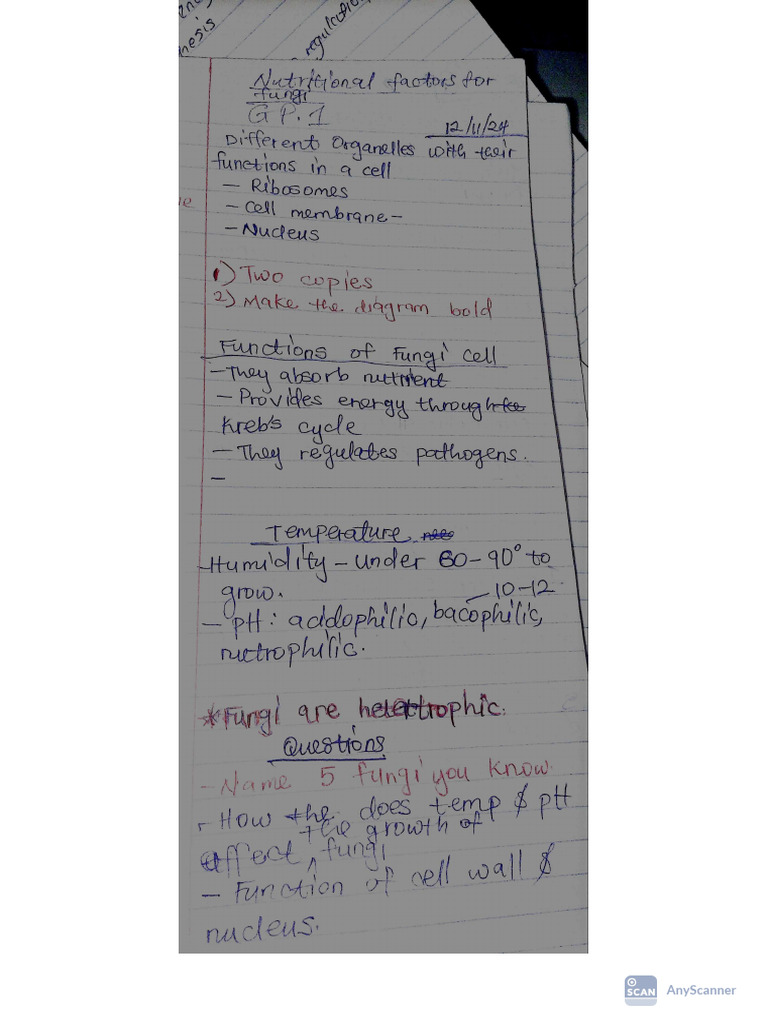 nesis
regulation
Nutritional factors for
fungi
GP.1
12/11/24
Different Organelles with their
functions in a cell
- Ribosomes
- Cell membrane -
- Nucleus
1) Two copies
2) Make the diagram bold
Functions of Fungi cell
- They absorb nutrient
- Provides energy through the
Kreb's cycle
- They regulates pathogens.
-
Temperature
Humidity - under 60-90° to
grow.
- 10-12
- pH: acidophilic, bacophilic,
nuetrophilic.
* Fungi are heterotrophic.
Questions
- Name 5 fungi you know
- How the does temp & pH
the growth of
affect ^ fungi
- Function of cell wall &
nucleus.
SCAN AnyScanner